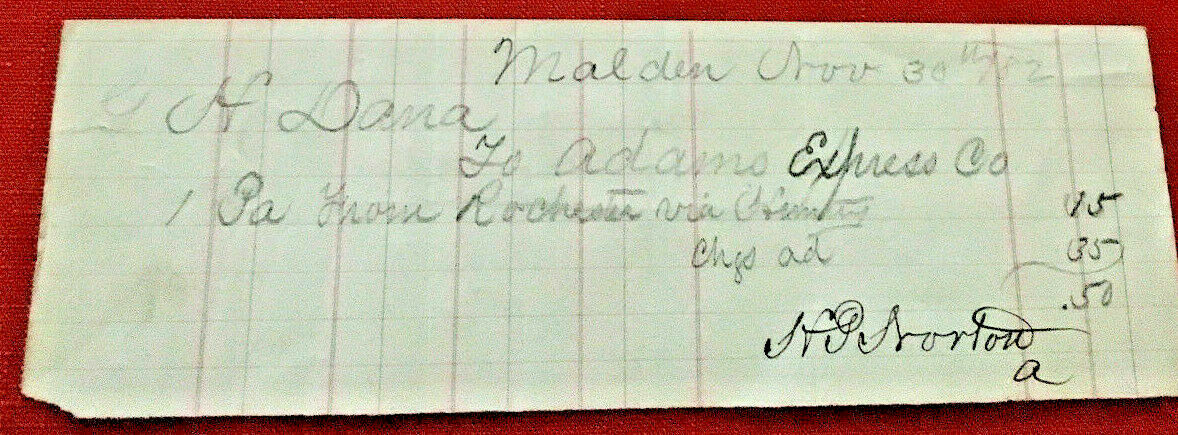 Malden Nov 30th/82
H Dana
To Adams Express Co
1 Pa From Rochester via
15
Chgs ad 35
.50
H P Norton
a